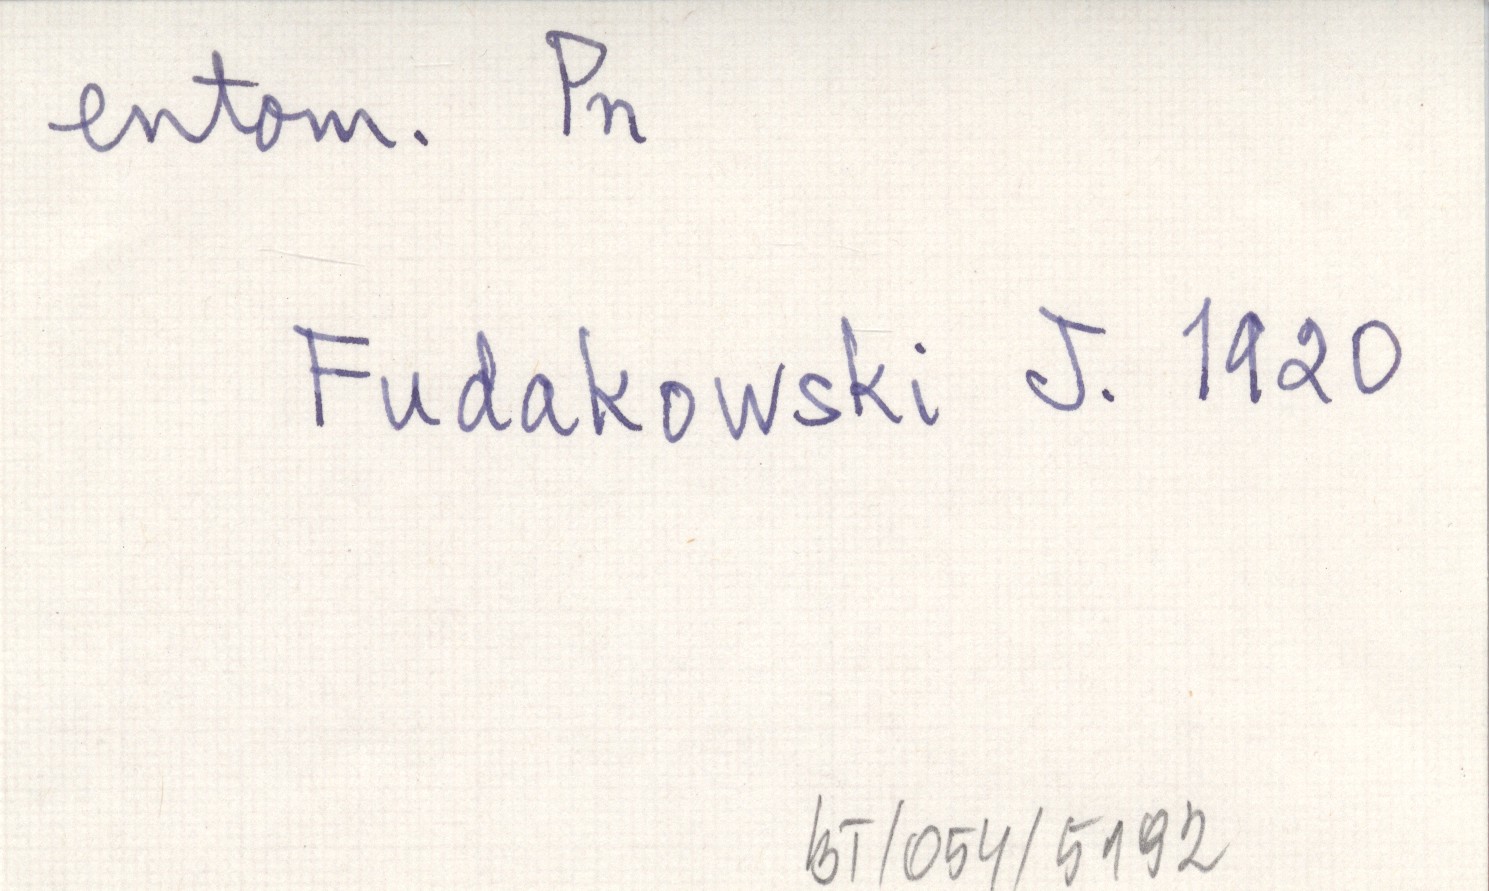 entom. Pn
Fudakowski J. 1920
BT/054/5192